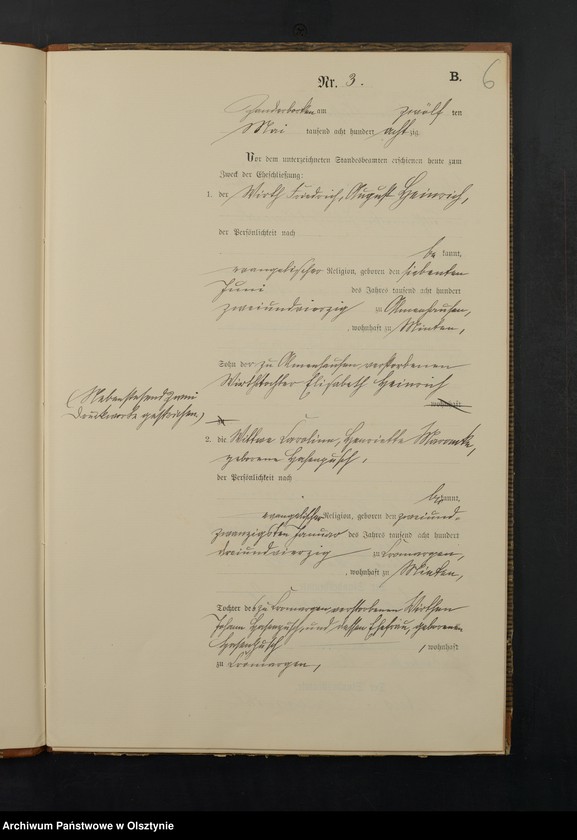 6
Nr. 3.
B.
am zwölf ten
Mai tausend acht hundert acht zig
Vor dem unterzeichneten Standesbeamten erschienen heute zum
Zweck der Eheschließung:
1. der Wirth Friedrich, August Heinrich,
der Persönlichkeit nach
be kannt,
evangelischer Religion, geboren den siebenten
Juni des Jahres tausend acht hundert
zweiundvierzig zu Almenhausen,
, wohnhaft zu
Sohn der zu Almenhausen verstorbenen
Wirthstochter Elisabeth Heinrich
wohnhaft
zu
Nebenstehend zwei
Druckworte gestrichen,
2. die Wittwe Caroline, Henriette
geborene Hasenpusch,
der Persönlichkeit nach
be kannt,
evangelischer Religion, geboren den zweiund-
zwanzigsten Januar des Jahres tausend acht hundert
dreiundvierzig zu
, wohnhaft zu
Tochter des zu verstorbenen Wirthen
Johann Hasenpusch und dessen Ehefrau, geborenen
Hasenpusch , wohnhaft
zu
Archiwum Państwowe w Olsztynie